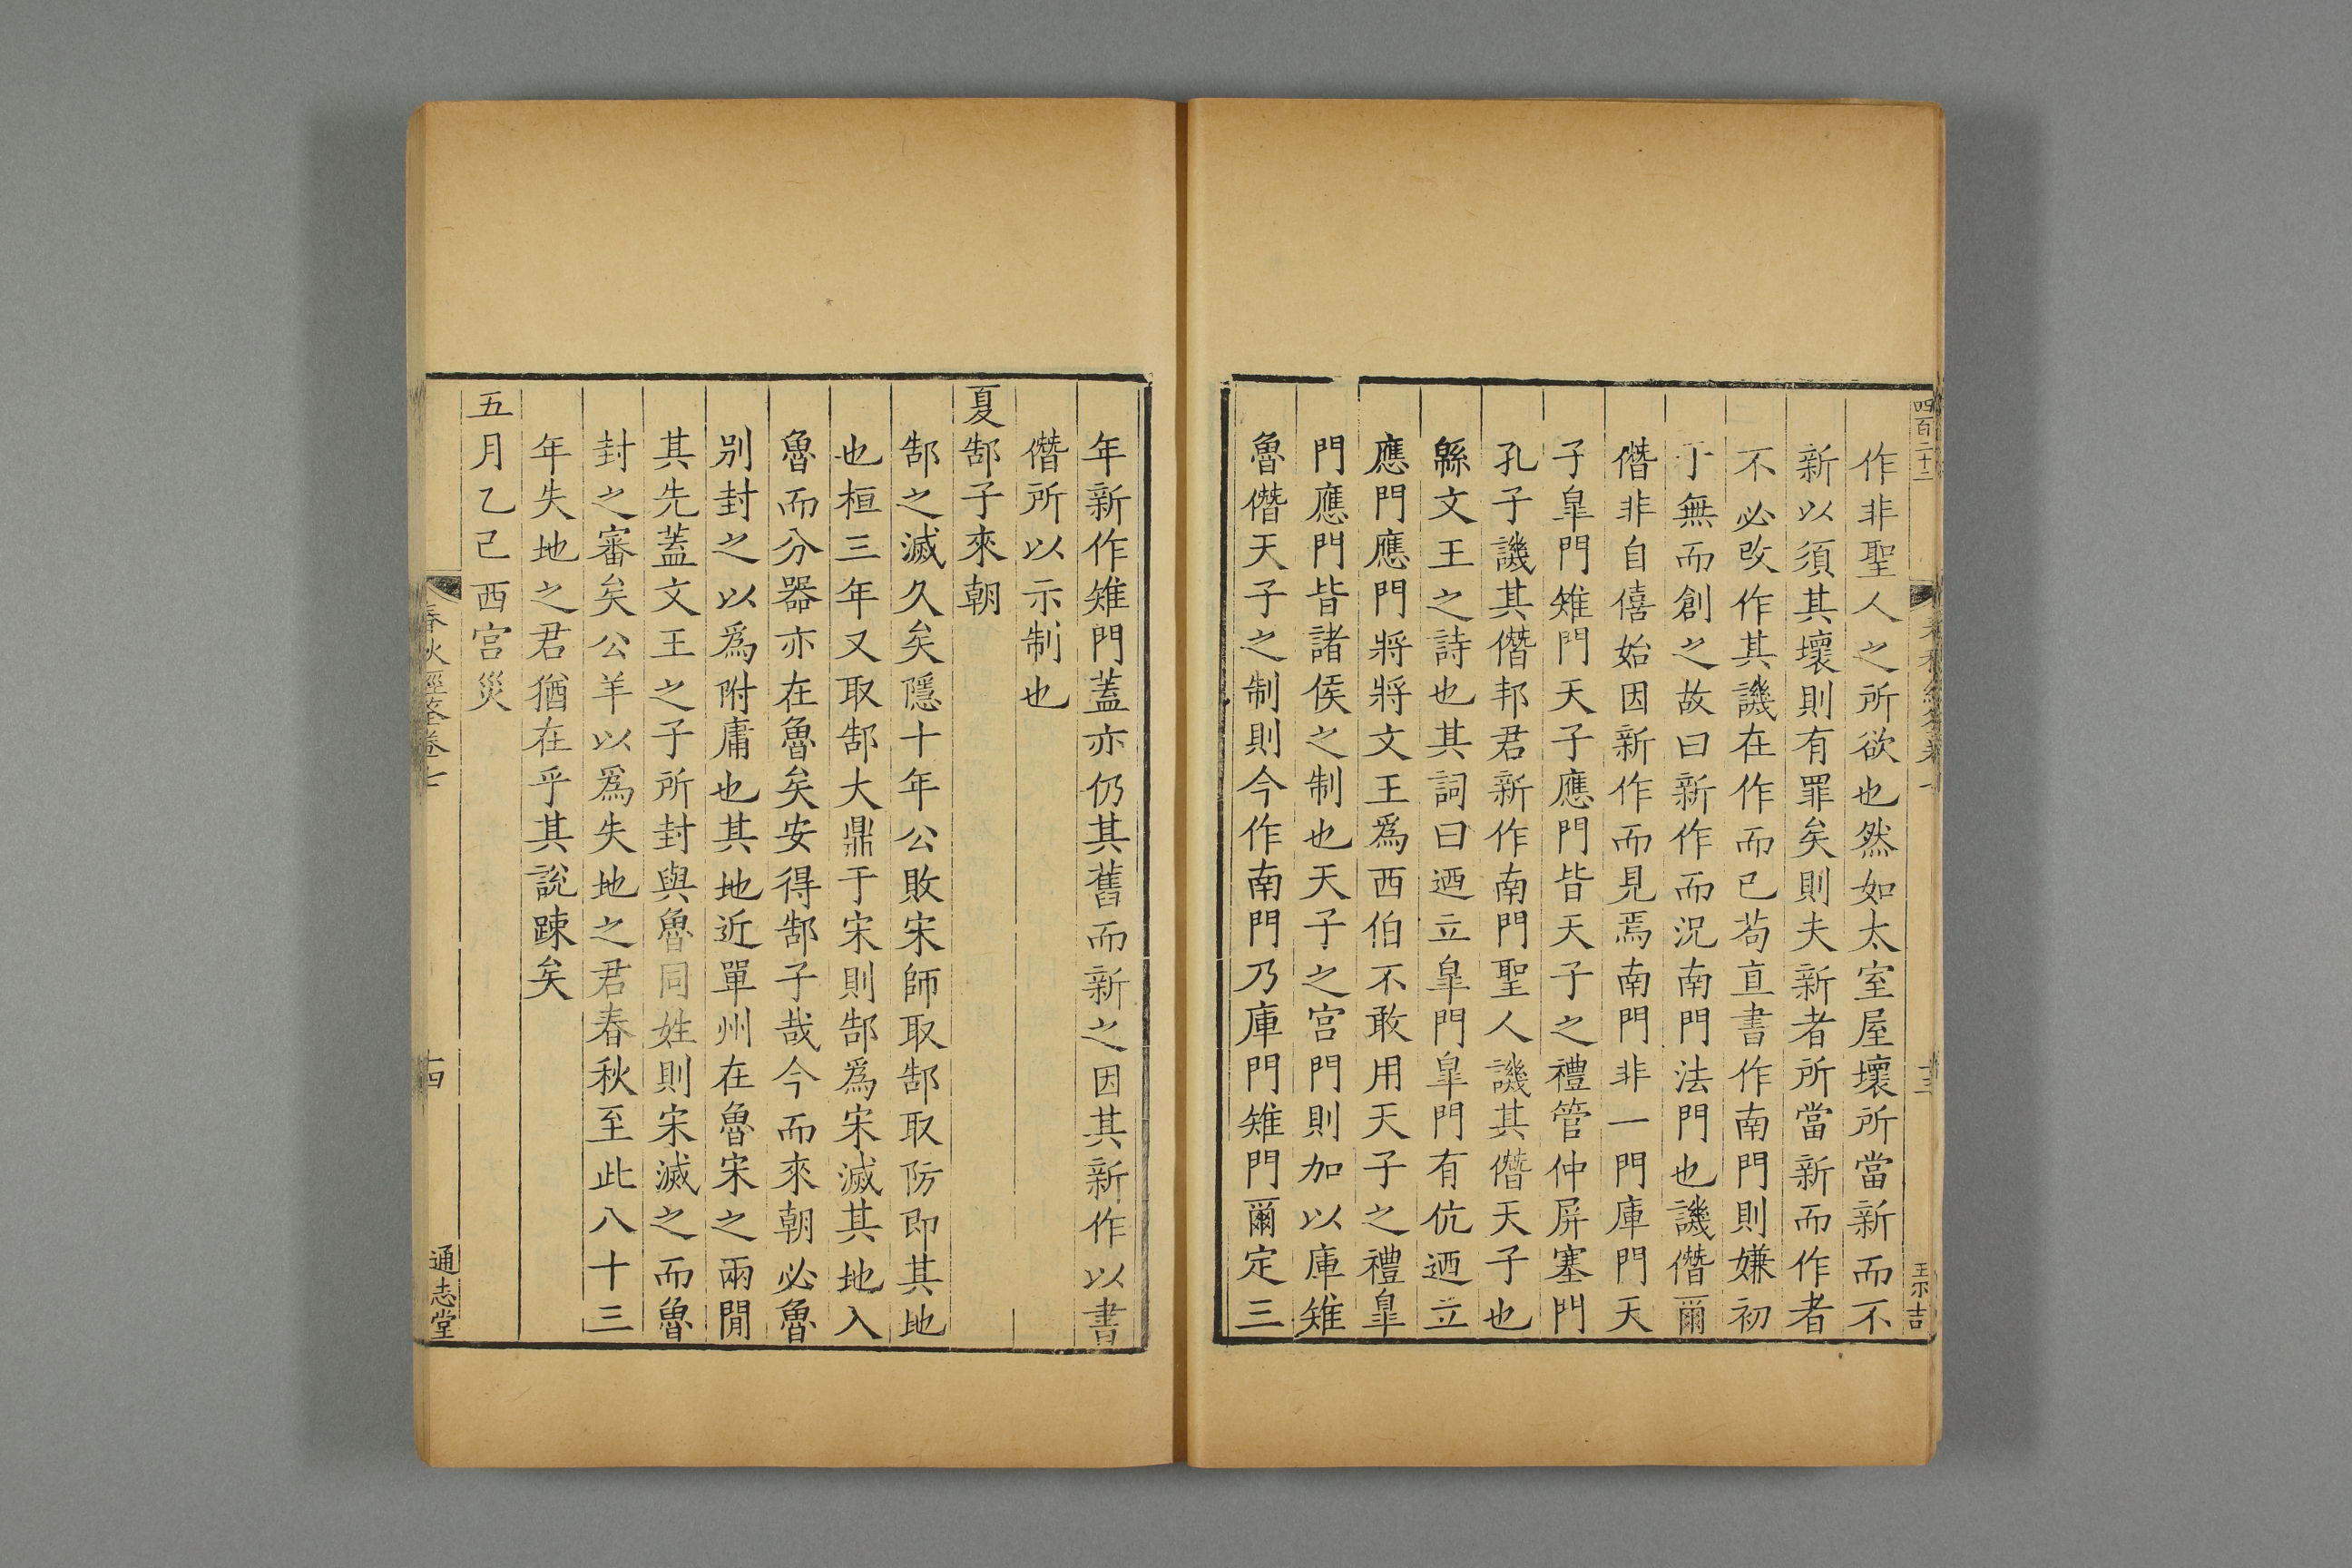 四百二十二
作非聖人之所欲也然如太室屋壞所當新而不
新以須其壞則有罪矣則夫新者所當新而作者
不必改作其譏在作而已茍直書作南門則嫌初
于無而創之故曰新作而況南門法門也譏僭爾
僭非自僖始因新作而見焉南門非一門庫門天
子臯門雉門天子應門皆天子之禮管仲屏塞門
孔子譏其僭邦君新作南門聖人譏其僭天子也
緜文王之詩也其詞曰迺立臯門臯門有伉迺立
應門應門將將文王爲西伯不敢用天子之禮臯
門應門皆諸侯之制也天子之宫門則加以庫雉
魯僭天子之制則今作南門乃庫門雉門爾定三
十三
王宗吉
年新作雉門蓋亦仍其舊而新之因其新作以書
僭所以示制也
夏郜子來朝
郜之滅久矣隱十年公敗宋師取郜取防即其地
也桓三年又取郜大鼎于宋則郜爲宋滅其地入
魯而分器亦在魯矣安得郜子哉今而來朝必魯
別封之以爲附庸也其地近單州在魯宋之兩閒
其先蓋文王之子所封與魯同姓則宋滅之而魯
封之審矣公羊以爲失地之君春秋至此八十三
年失地之君猶在乎其說踈矣
五月乙巳西宫災
春秋經筌卷七
十四
通志堂